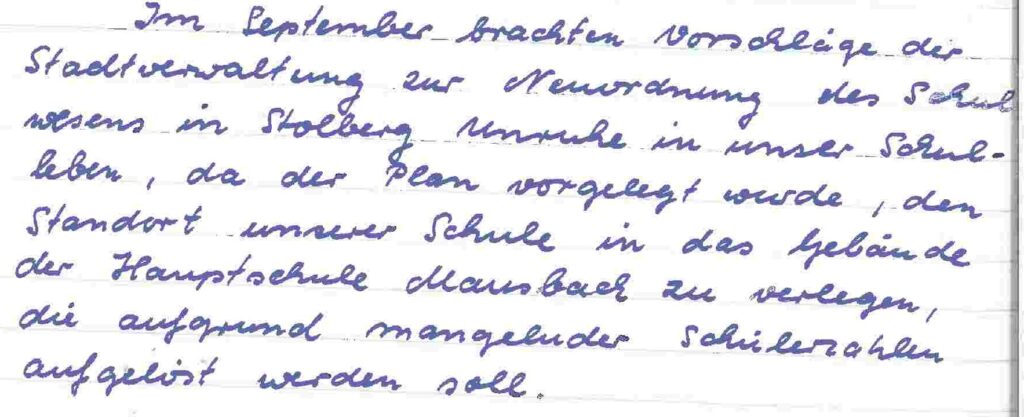 Im September brachten Vorschläge der
Stadtverwaltung zur Neuordnung des Schul
wesens in Stolberg Unruhe in unser Schul-
leben, da der Plan vorgelegt wurde, den
Standort unserer Schule in das Gebäude
der Hauptschule Mausbach zu verlegen,
die aufgrund mangelnder Schülerzahlen
aufgelöst werden soll.